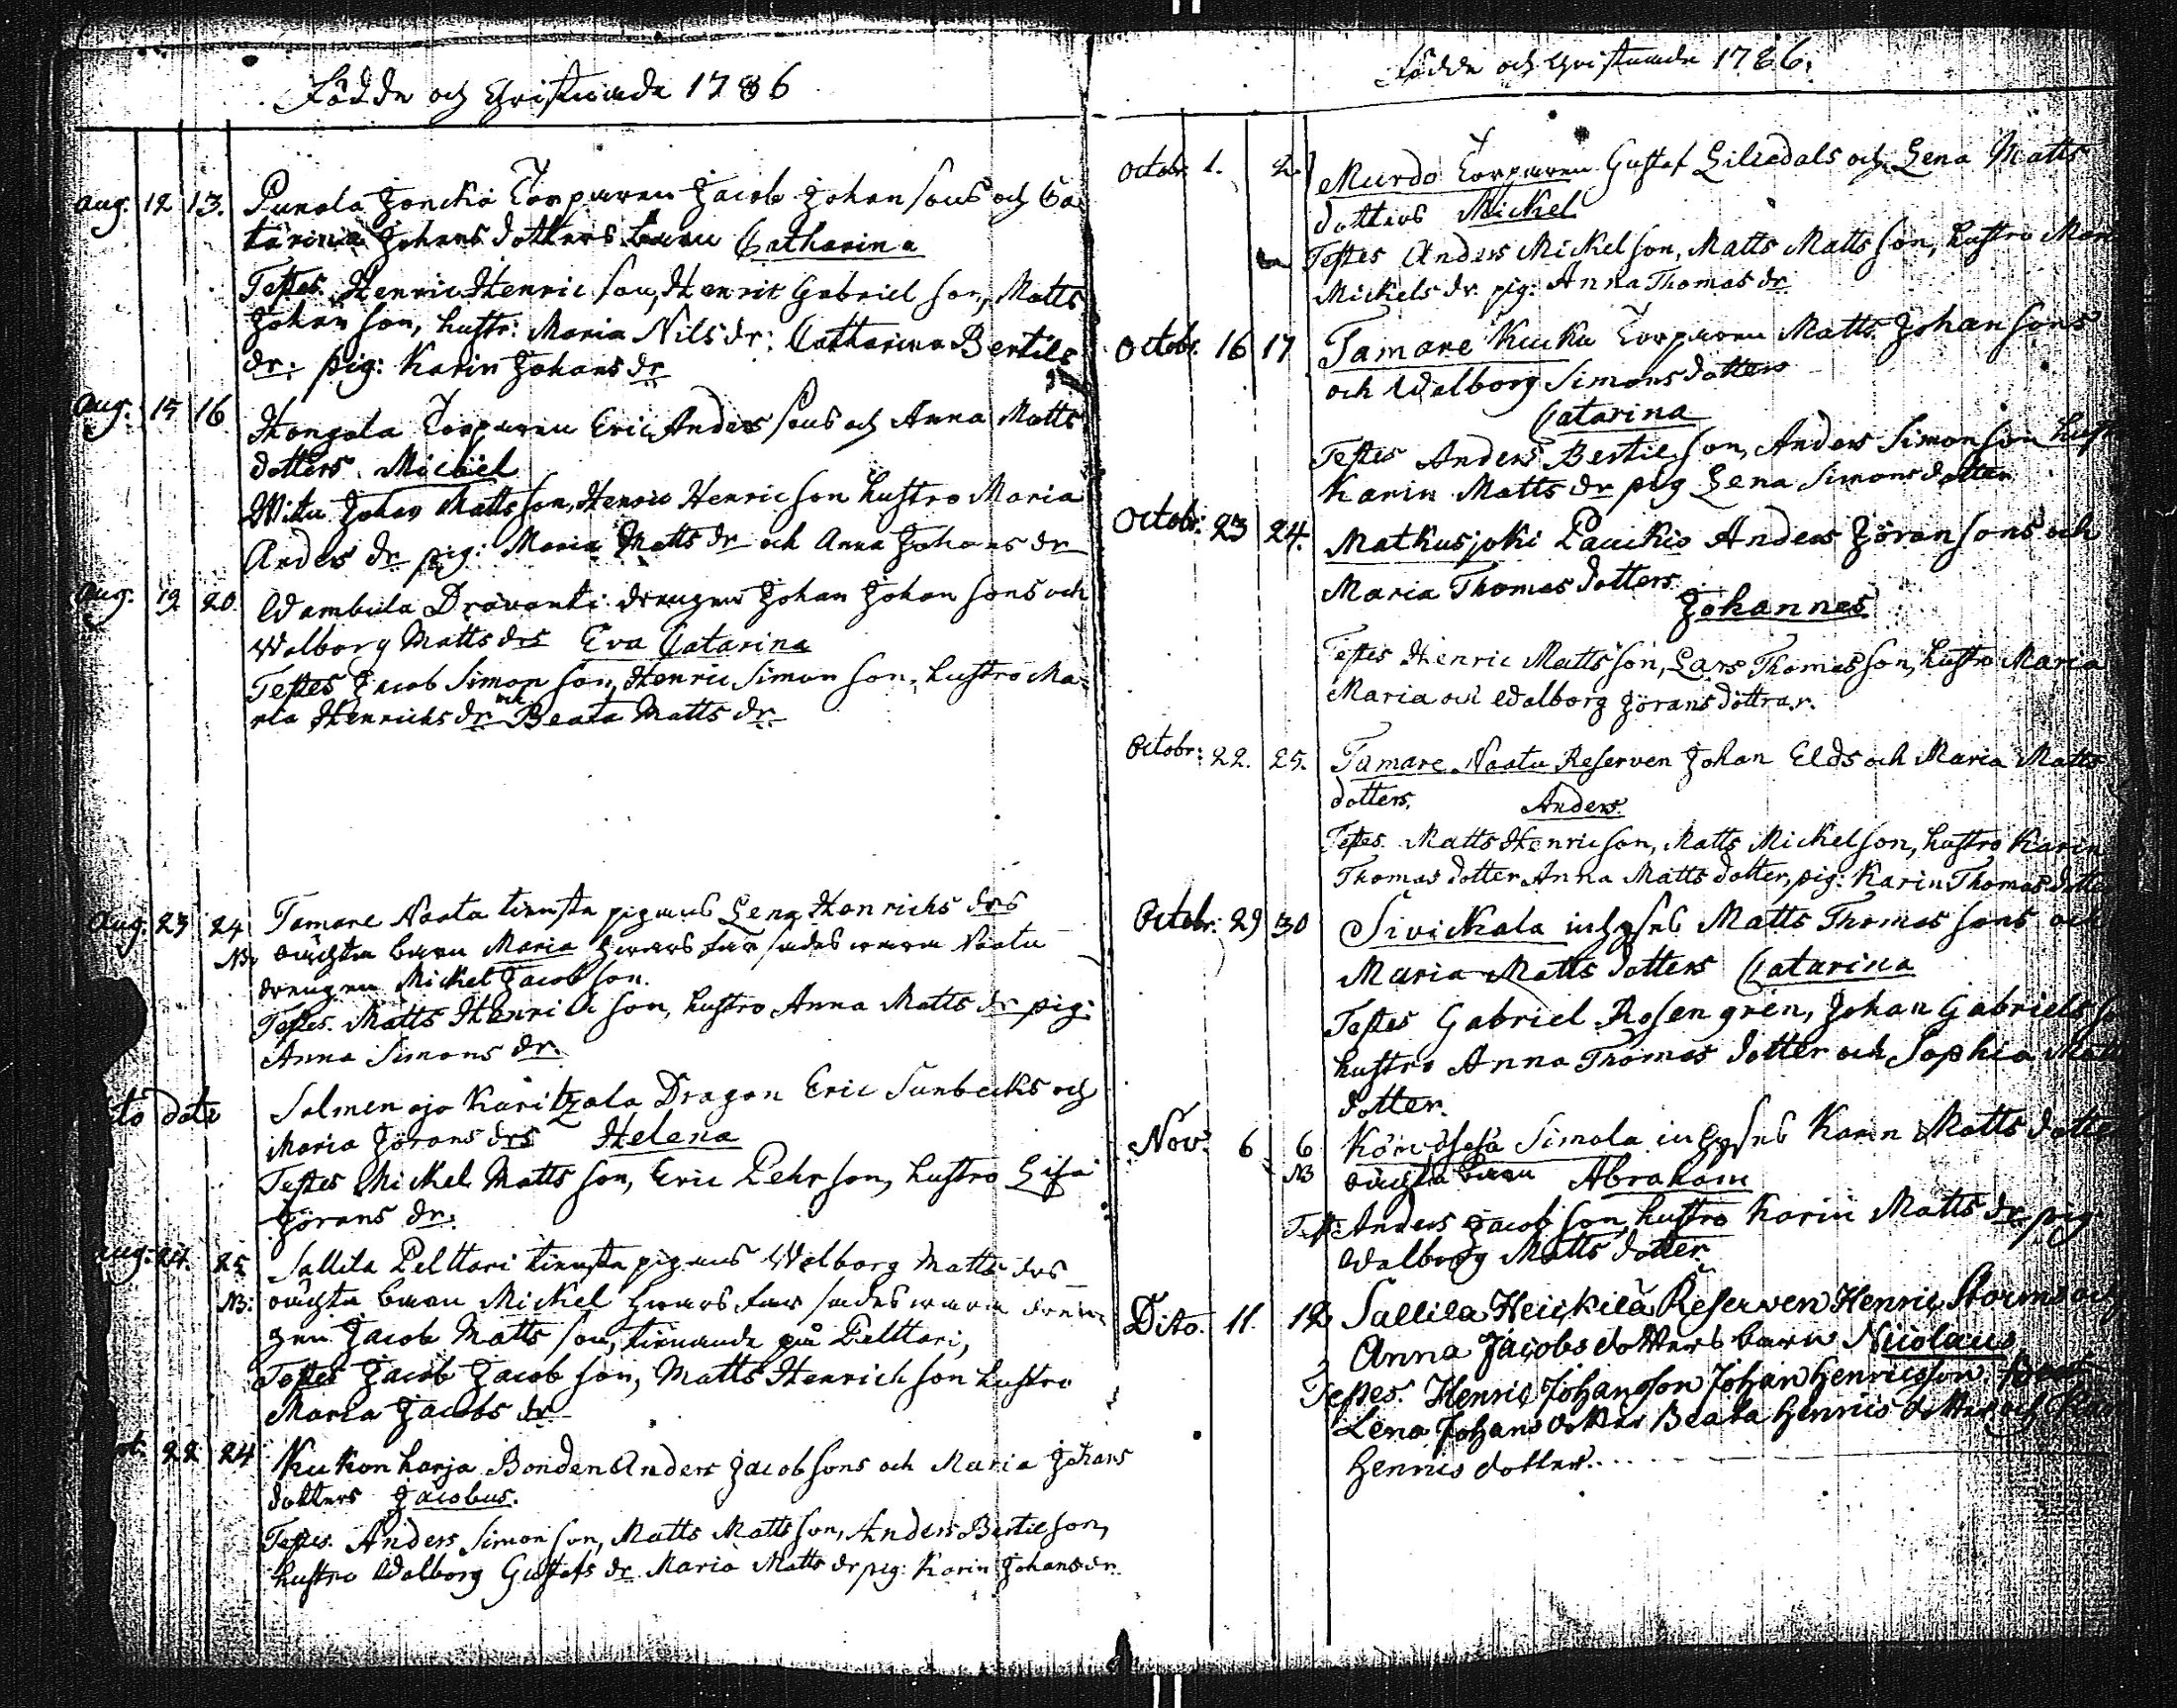 Födde och Christnade 1786
Aug. 12 13. Punola Joncka Torparen Jacob Johansons och Ca
tarina Johans dotters barn Catharina
Testes. Henric Henric son, Henric Gabriel son, Matts
Johan son, hustr: Maria Nils dr: Catharina Bertils
dr: pig: Karin Johans dr
Aug. 15 16. Hongola Torparen Eric Anders sons och Anna Matts
dotters Michel
Witn Johan Matts son, Henric Henric son hustro Maria
Anders dr pig: Maria Matts dr och Anna Johans dr
Aug. 19 20. Wambula Dravanti drengen Johan Johan sons och
Walborg Matts drs Eva Catarina
Testes Jacob Simon son, Henric Simon son, hustro Ma-
ria Henrichs dr och Beata Matts dr
Aug. 23 24 Tamare Naata tiensta pigans Lena Henrichs drs
NB. oächta barn Maria hvars far sades wara Naatu
drengen Mickel Jacob son.
Testes. Matts Henric son, hustro Anna Matts dr pig:
Anna Simons dr.
dato Salmenoja Karitzala Dragon Eric Sunbecks och
Maria Jörans drs Helena
Testes Mickel Matts son, Eric Pehr son, hustro Lisa
Jörans dr.
Aug. 24. 25 Sallila Pelttari tiensta pigans Walborg Matts drs
NB: oächta barn Mickel hvars far sades wara dren-
gen Jacob Matts son, tienande på Pelttari,
Testes Jacob Jacob son, Matts Henrich son hustro
Maria Jacobs dr
22 24 Kukonharja Bonden Anders Jacob sons och Maria Johans
dotters Jacobus.
Testes. Anders Simon son, Matts Matts son, Anders Bertil son,
hustro Walborg Gustafs dr Maria Matts dr pig: Karin Johans dr.
Födde och Christnade 1786.
Octobr. 1. 2. Murdo Torparen Gustaf Liliedals och Lena Matts
dotters Mickel
Testes Anders Mickel son, Matts Matts son, hustro
Mickels dr. pig: Anna Thomas dr
Octobr. 16 17 Tamare Kuku Torparen Matts Johan sons
och Walborg Simons dotters
Catarina
Testes Anders Bertil son, Anders Simon son
Karin Matts dr pig Lena Simons dotter
Octobr: 23 24. Matkusjoki Paukio Anders Jöran sons och
Maria Thomas dotters
Johannes.
Testes Henric Matts son, Lars Thomas son, hustro Maria
Maria och Walborg Jörans döttrar.
Octobr: 22. 25. Tamare Naatu Reserven Johan Elds och Maria Matts
dotters. Anders.
Testes. Matts Henric son, Matts Mickel son, hustro Karin
Thomas dotter Anna Matts dotter, pig: Karin Thomas
Octobr: 29 30 Sivickala inhyses Matts Thomas sons och
Maria Matts dotters Catarina
Testes Gabriel Rosengren, Johan Gabriels
hustro Anna Thomas dotter och Sophia
dotter.
Nov. 6 6 Simola inhyses Karin Matts
NB oächta barn Abraham
Test: Anders Jacob son, hustro Karin Matts dr pig
Walborg Matts dotter.
Dito. 11. 12 Sallila Heickilä Reserven Henric Storms och
Anna Jacobs dotters barn Nicolaus
Testes. Henric Johanson Johan Henricson
Lena Johans dotter Beata Henrics dotter och
Henrics dotter.